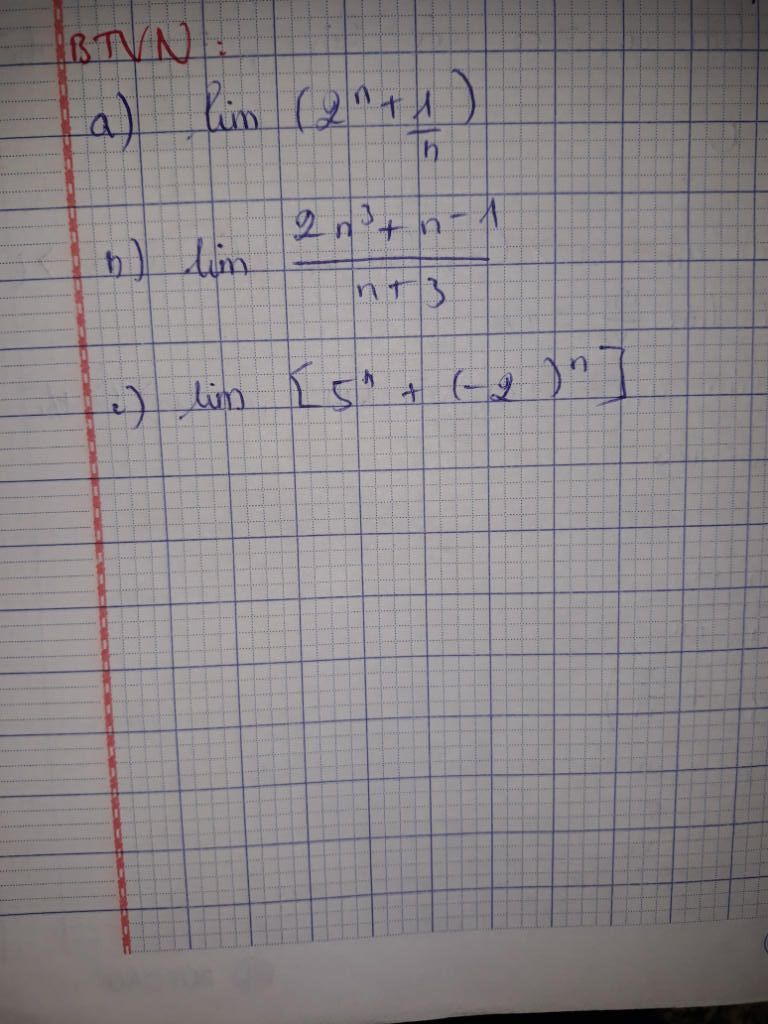 BTVN :
a) lim (2^n + 1/n)
b) lim (2n^3 + n - 1)/(n + 3)
c) lim [5^n + (-2)^n]